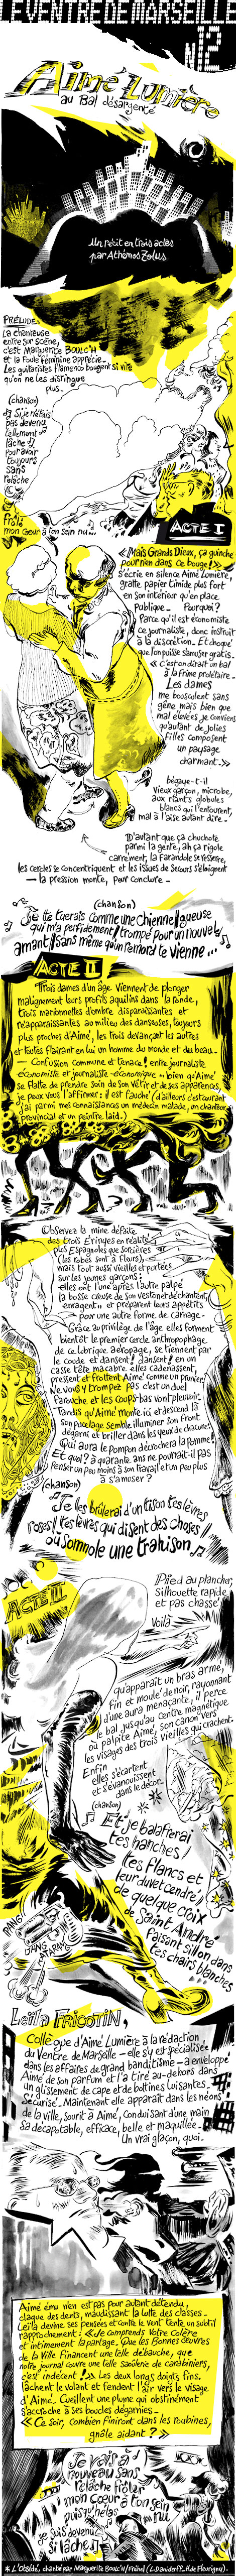 LE VENTRE DE MARSEILLE
N°12
Aimé Lumière
au Bal désargenté
Un récit en trois actes
par Athémos Zolus
PRÉLUDE
La chanteuse
entre sur scène,
c'est Marguerite BOULC'H
et la foule féminine apprécie.
Les guitaristes flamenco bougent si vite
qu'on ne les distingue
plus.
(chanson)
Si je n'étais
pas devenu
tellement
lâche
pour avoir
toujours
sans
relâche
Frôlé
mon cœur à ton sein nu...
ACTE I
« Mais Grands Dieux, ça guinche
pour rien dans ce bouge ! »
s'écrie en silence Aimé Lumière,
gratte papier timide plus fort
en son intérieur qu'en place
Publique. Pourquoi ?
Parce qu'il est économiste
ce journaliste, donc instruit
à la discrétion. Et choqué
que l'on puisse s'amuser gratis.
« C'est on dirait un bal
à la frime prolétaire.
Les dames
me bousculent sans
gêne mais bien que
mal élevées je conviens
qu'autant de jolies
filles composent
un paysage
charmant. »
bégaye-t-il
vieux garçon, microbe,
aux riants globules
blancs qui l'entourent,
mal à l'aise autant dire.
D'autant que ça chuchote
parmi la gente, ah ça rigole
carrément, la farandole se resserre,
les cercles se concentriquent et les issues de secours s'éloignent
— la pression monte, pour conclure.
(chanson)
Je te tuerais comme une chienne / lagueuse
qui m'a perfidement / trompé pour un nouvel
amant / sans même qu'un remord te vienne...
ACTE II
Trois dames d'un âge viennent de plonger
malignement leurs profils aquilins dans la ronde,
trois marionnettes d'ombre disparaissantes et
réapparaissantes au milieu des danseuses, toujours
plus proches d'Aimé, les trois devançant les autres
et toutes flairant en lui un homme du monde et du beau.
— Confusion commune et tenace ! entre journaliste
économiste et journaliste économique — bien qu'Aimé
se flatte de prendre soin de son vêtir et de ses apparences,
je peux vous l'affirmer : il est fauché (d'ailleurs c'est courant
j'ai parmi mes connaissances un médecin malade, un chanteur
provincial et un peintre laid.)
Observez la mine défaite
des trois Étriques en réalité
plus Espagnoles que sorcières
(les robes sont à fleurs)
mais tout aussi vieilles et portées
sur les jeunes garçons :
elles ont l'une après l'autre palpé
la bosse creuse de son veston et déchantent,
enragent et préparent leurs appétits
pour une autre forme de carnage.
Grâce au privilège de l'âge elles forment
bientôt le premier cercle anthropophage
de ce lubrique aréopage, se tiennent par
le coude et dansent ! dansent ! en un
casse tête macabre elles cadenassent,
pressent et frottent Aimé comme un prunier.
Ne vous y trompez pas c'est un duel
farouche et les coups bas vont pleuvoir.
Tandis qu'Aimé monte ici et descend là
son pucelage semble illuminer son front
dégarni et briller dans les yeux de chacune.
Qui aura le pompon décrochera la pomme !
Et quoi ? à quarante ans ne pourrait-il pas
penser un peu moins à son travail et un peu plus
à s'amuser ?
(chanson)
Je les brûlerai d'un tison tes lèvres
roses / tes lèvres qui disent des choses /
où somnole une trahison
ACTE III
Pied au plancher,
silhouette rapide
et pas chassé
Voilà
qu'apparaît un bras armé,
fin et moulé de noir, rayonnant
d'une aura menaçante, il perce
le bal jusqu'au centre magnétique
où palpite Aimé, son canon vers
les visages des trois vieilles qui crachent.
Enfin
elles s'écartent
et s'évanouissent
dans le décor.
(chanson)
Et je balafrerai
tes hanches /
tes flancs et
leur duvet cendré /
de quelque croix
de Saint André
faisant sillon dans
tes chairs blanches
BANG
BANG
BANG
Leïla FRICOTIN,
Collègue d'Aimé Lumière à la rédaction
du Ventre de Marseille — elle s'y est spécialisée
dans les affaires de grand banditisme — a enveloppé
Aimé de son parfum et l'a tiré au-dehors dans
un glissement de cape et de bottines luisantes.
Sécurisé. Maintenant elle apparaît dans les néons
de la ville, sourit à Aimé, conduisant d'une main
sa décapotable, efficace, belle et maquillée.
Un vrai glaçon, quoi.
Aimé ému n'en est pas pour autant détendu,
claque des dents, maudissant la lutte des classes.
Leïla devine ses pensées et contre le vent tente un subtil
rapprochement : « Je comprends votre colère
et intimement la partage. Que les Bonnes Œuvres
de la Ville financent une telle débauche, que
notre journal couvre une telle saoulerie de carabiniers,
c'est indécent ! » Les deux longs doigts fins,
lâchent le volant et fendent l'air vers le visage
d'Aimé. Cueillent une plume qui obstinément
s'accroche à ses boucles dégarnies.
« Ce soir, combien finiront dans les roubines,
gnôle aidant ? »
Je vais à
nouveau sans
relâche frôler
mon cœur à ton sein
nu,
puisqu'hélas
je suis devenu
si lâche
* L'obsédé, chanté par Marguerite Boulc'h / Fréhel (L. Daniderff - H. de Fleurigny).